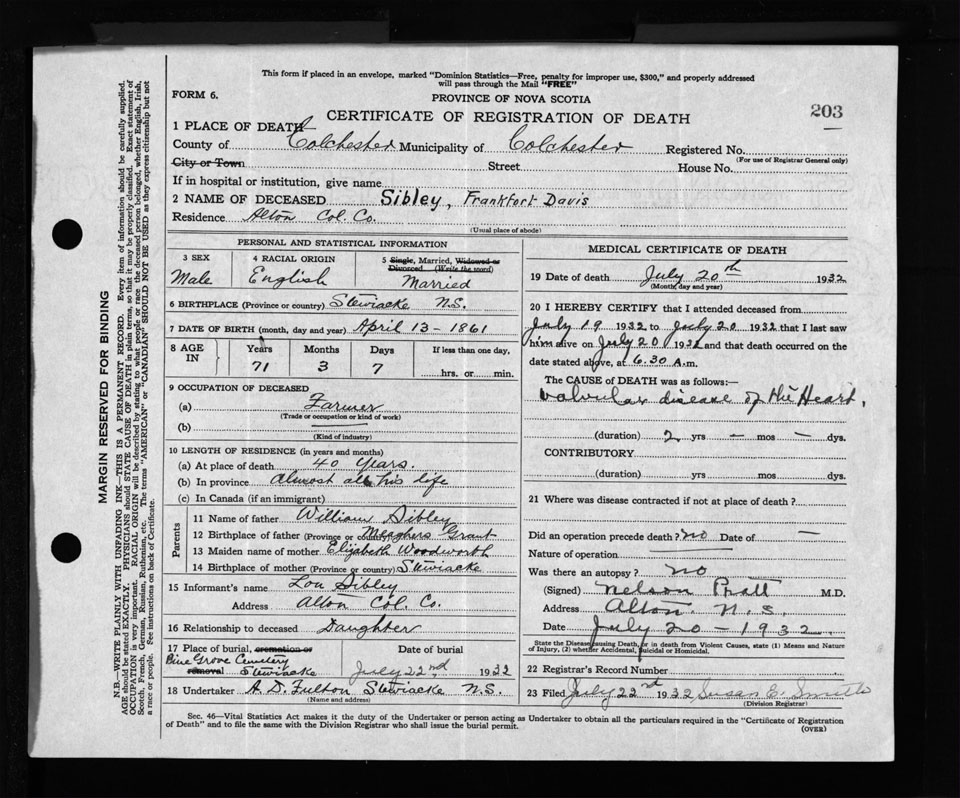 This form if placed in an envelope, marked "Dominion Statistics—Free, penalty for improper use, $300," and properly addressed
will pass through the Mail "FREE"
FORM 6.
PROVINCE OF NOVA SCOTIA
203
CERTIFICATE OF REGISTRATION OF DEATH
1 PLACE OF DEATH
County of Colchester Municipality of Colchester Registered No.
(For use of Registrar General only)
City or Town Street House No.
If in hospital or institution, give name
2 NAME OF DECEASED Sibley, Frankfort Davis
Residence Alton Col. Co.
(Usual place of abode)
PERSONAL AND STATISTICAL INFORMATION
3 SEX 4 RACIAL ORIGIN 5 Single, Married, Widowed or
Divorced (Write the word)
Male English Married
6 BIRTHPLACE (Province or country) Stewiacke N.S.
7 DATE OF BIRTH (month, day and year) April 13 - 1861
8 AGE IN Years Months Days If less than one day,
71 3 7 hrs. or min.
9 OCCUPATION OF DECEASED
(a) Farmer
(Trade or occupation or kind of work)
(b)
(Kind of industry)
10 LENGTH OF RESIDENCE (in years and months)
(a) At place of death 40 years.
(b) In province almost all his life
(c) In Canada (if an immigrant)
Parents
11 Name of father William Sibley
12 Birthplace of father (Province or country) Meaghers Grant
13 Maiden name of mother Elizabeth Woodworth
14 Birthplace of mother (Province or country) Stewiacke
15 Informant's name Lou Sibley
Address Alton Col. Co.
16 Relationship to deceased Daughter
17 Place of burial, cremation or Date of burial
Pine Grove Cemetery
removal Stewiacke July 22nd 1932
18 Undertaker A. D. Fulton Stewiacke N.S.
(Name and address)
MEDICAL CERTIFICATE OF DEATH
19 Date of death July 20th 1932
(Month, day and year)
20 I HEREBY CERTIFY that I attended deceased from
July 19 1932 to July 20 1932 that I last saw
him alive on July 20 1932 and that death occurred on the
date stated above, at 6.30 A.m.
The CAUSE of DEATH was as follows:—
valvular disease of the Heart,
(duration) 2 yrs — mos — dys.
CONTRIBUTORY
(duration) yrs. mos. dys.
21 Where was disease contracted if not at place of death?
Did an operation precede death? no Date of —
Nature of operation
Was there an autopsy? no
(Signed) Nelson Pratt M.D.
Address Alton N.S.
Date July 20 - 1932
State the Disease causing Death, or in death from Violent Causes, state (1) Means and Nature
of Injury, (2) whether Accidental, Suicidal or Homicidal.
22 Registrar's Record Number
23 Filed July 22nd 1932 Susan E. Smith
(Division Registrar)
Sec. 46—Vital Statistics Act makes it the duty of the Undertaker or person acting as Undertaker to obtain all the particulars required in the "Certificate of Registration
of Death" and to file the same with the Division Registrar who shall issue the burial permit.
(OVER)
MARGIN RESERVED FOR BINDING
N.B.—WRITE PLAINLY WITH UNFADING INK—THIS IS A PERMANENT RECORD. Every item of information should be carefully supplied.
AGE should be stated EXACTLY. PHYSICIANS should STATE CAUSE OF DEATH in plain terms, so that it may be properly classified. Exact statement of
OCCUPATION is very important. RACIAL ORIGIN will be described by stating to what people or race the deceased person belonged, whether English, Irish,
Scotch, French, German, Russian, Ruthenian, etc. The terms "AMERICAN" or "CANADIAN" SHOULD NOT BE USED as they express citizenship but not
a race or people. See instructions on back of Certificate.